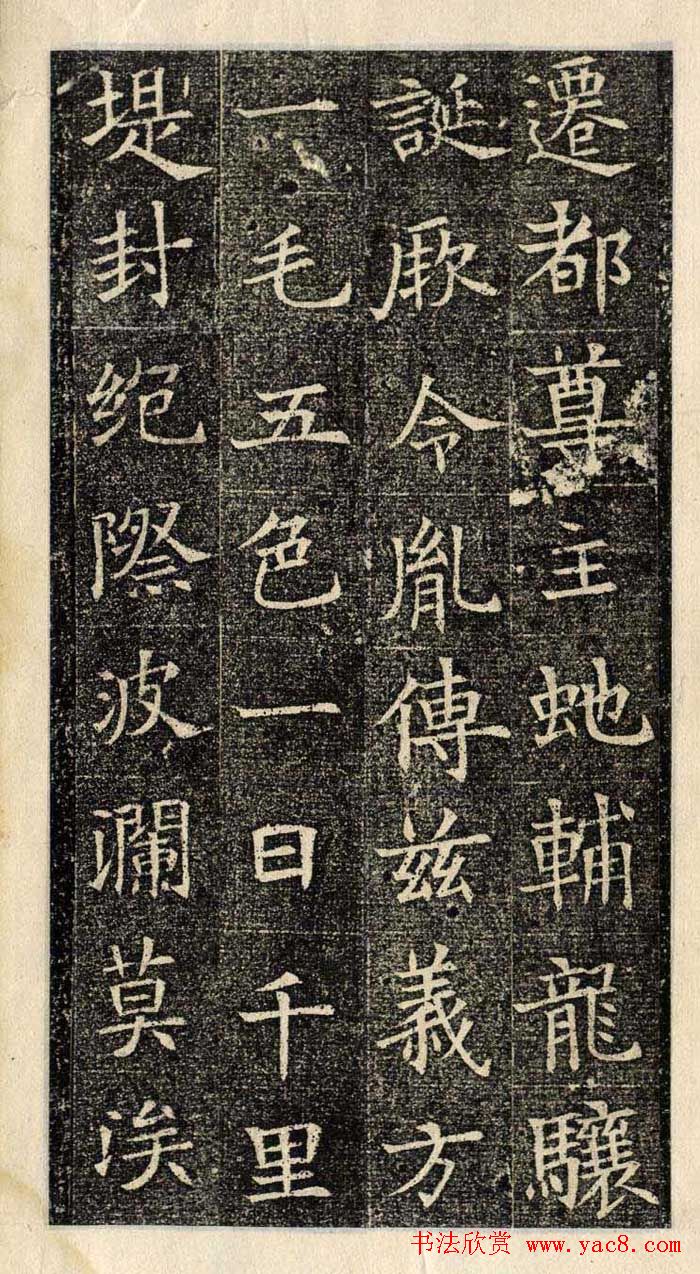 遷都尊主虵輔龍驤
誕厥令胤傅兹義方
一毛五色一日千里
堤封綻際波瀾莫涘
书法欣赏 www.yac8.com